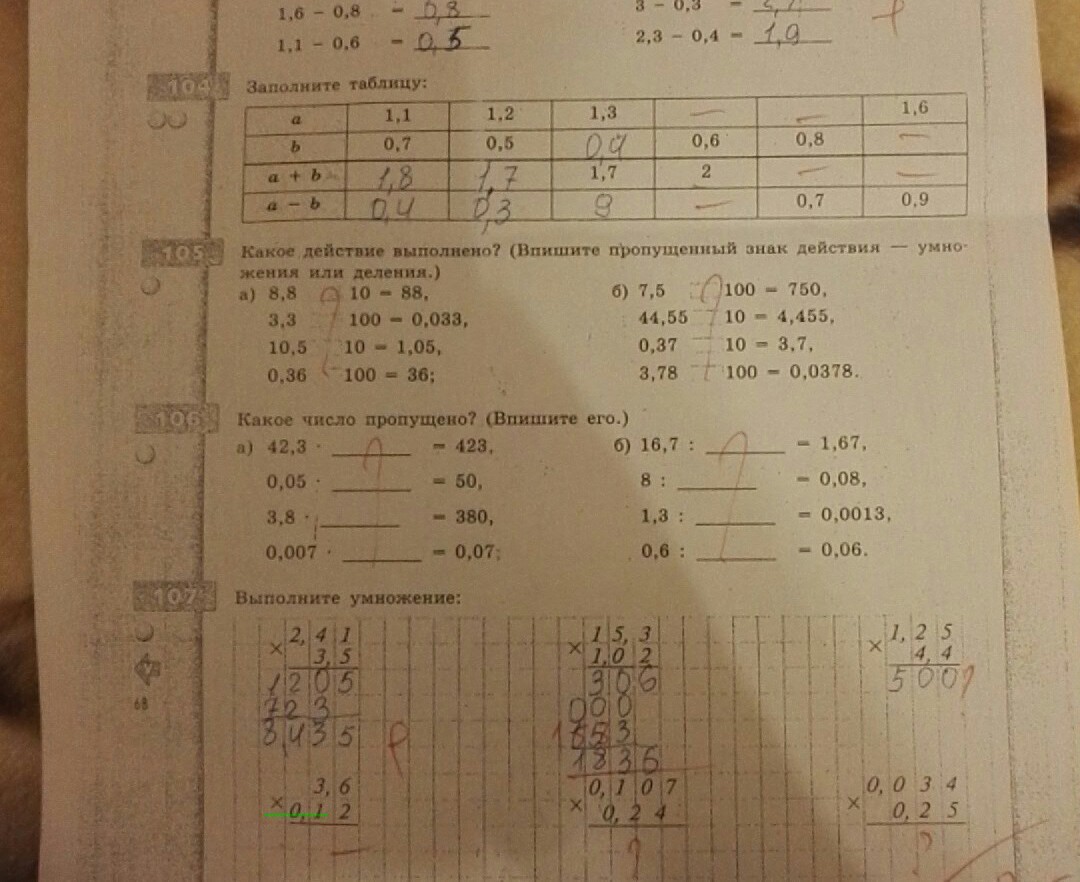 1,6 − 0,8 = 0,8
3 − 0,3 =
1,1 − 0,6 = 0,5
2,3 − 0,4 = 1,9
104 Заполните таблицу:
a 1,1 1,2 1,3 — — 1,6
b 0,7 0,5 0,4 0,6 0,8 —
a + b 1,8 1,7 1,7 2 — —
a − b 0,4 0,3 9 — 0,7 0,9
105 Какое действие выполнено? (Впишите пропущенный знак действия — умно-
жения или деления.)
а) 8,8 10 = 88,
3,3 100 = 0,033,
10,5 10 = 1,05,
0,36 100 = 36;
б) 7,5 100 = 750,
44,55 10 = 4,455,
0,37 10 = 3,7,
3,78 100 = 0,0378.
106 Какое число пропущено? (Впишите его.)
а) 42,3 · ______ = 423,
0,05 · ______ = 50,
3,8 · ______ = 380,
0,007 · ______ = 0,07;
б) 16,7 : ______ = 1,67,
8 : ______ = 0,08,
1,3 : ______ = 0,0013,
0,6 : ______ = 0,06.
107 Выполните умножение:
× 2,41
3,5
1205
723
8,435
× 15,3
1,02
306
000
153
1836
× 1,25
4,4
500 ?
68
× 3,6
0,12
—
× 0,107
0,24
?
× 0,034
0,25
?